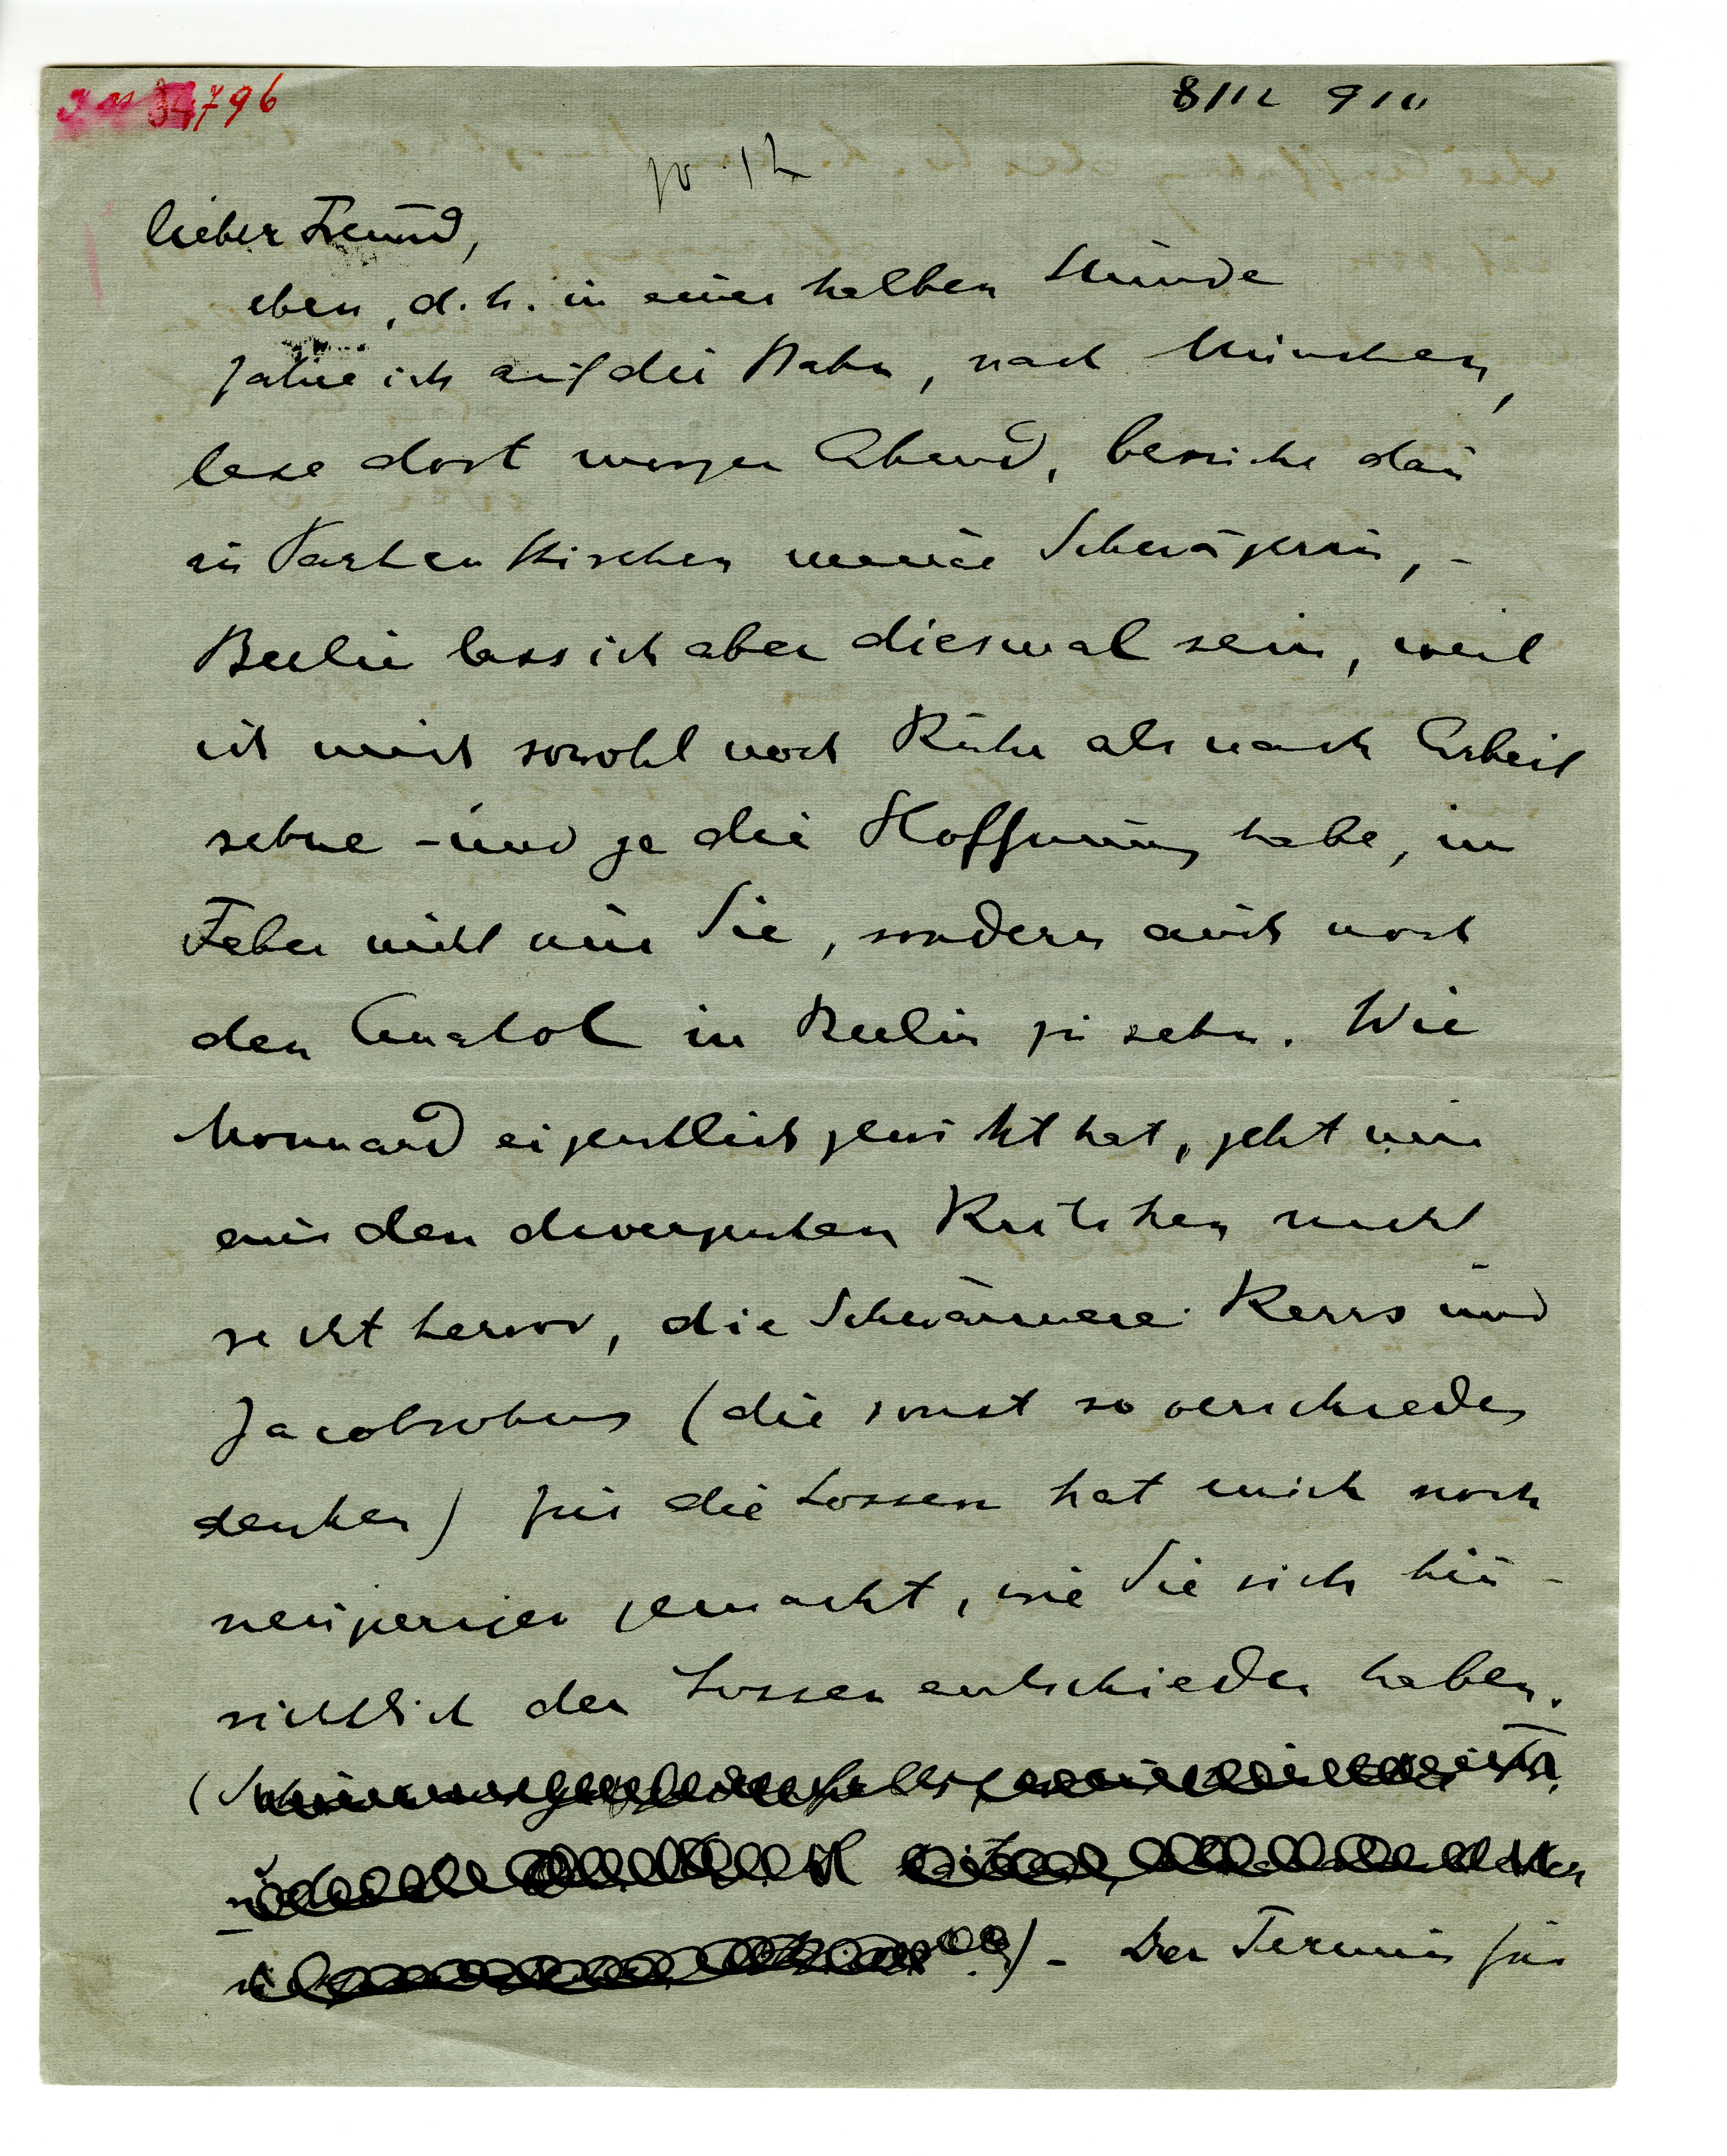 796
8/12 910
10.12
lieber Freund,
eben, d. h. in einer halben Stunde
fahre ich auf die Bahn, nach München,
lese dort morgen Abend, besuche dañ
in Partenkirchen meine Schwägerin, –
Berlin lass ich aber diesmal sein, weil
ich mich sowohl nach Ruhe als nach Arbeit
sehne – und ja die Hoffnung habe, im
Feber nicht nur Sie, sondern auch noch
den Anatol in Berlin zu sehn. Wie
Monnard eigentlich gewirkt hat, geht mir
aus den divergenten Kritiken nicht
recht hervor, die Schwärmerei Kerrs und
Jacobsohns (die sonst so verschieden
denken) für die Lossen hat mich noch
neugieriger gemacht, wie Sie sich hin-
sichtlich der Lossen entschieden haben.
(
) – Der Termin für